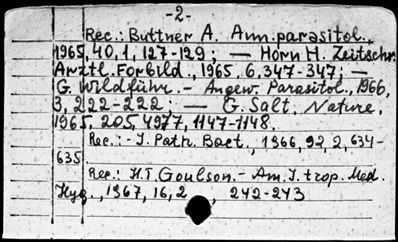 -2-
Rec.: Buttner A. Ann. parasitol.,
1965, 40, 1, 127-129; — Horn H. Zeitschr.
Arztl. Forbild., 1965. 6, 347-347; —
G. Wildführ. - Angew. Parasitol., 1966,
3, 222-222; — G. Salt. Nature,
1965, 205, 4977, 1147-1148.
Rec.: - J. Path. Bact., 1966, 92, 2, 634-
635
Rec.: H.T. Goulson. - Am. J. trop. Med.
Hyg., 1967, 16, 2, 242-243